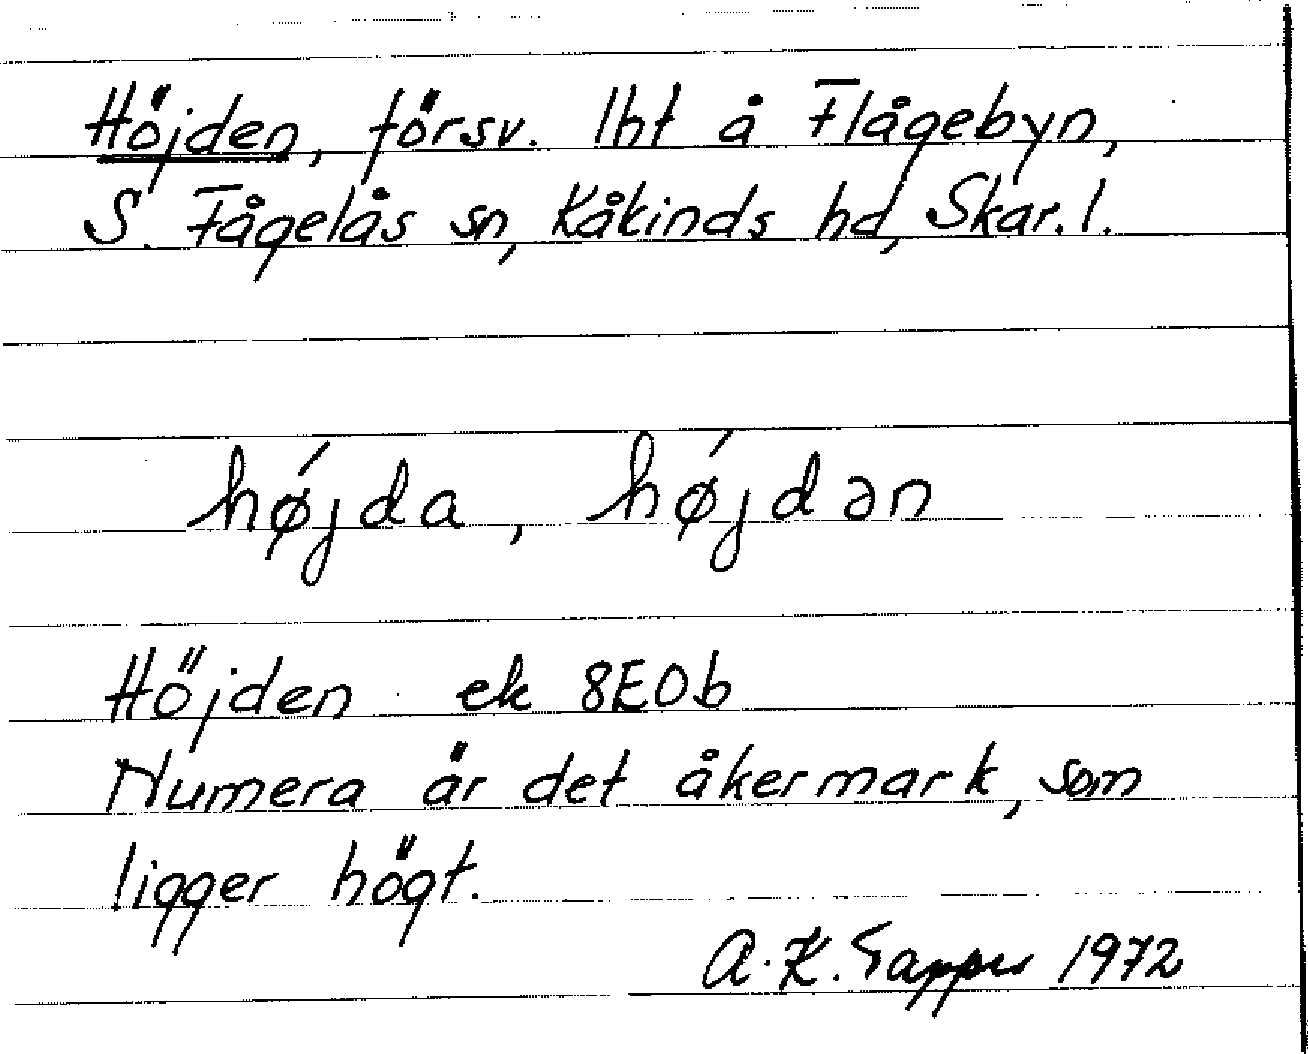 Höjden, försv. lht å Flågebyn,
S. Fågelås sn, Kåkinds hd, Skar. l.
hǿjda, hǿjdən
Höjden ek 8E0b
Numera är det åkermark, som
ligger högt.
A.K. 1972